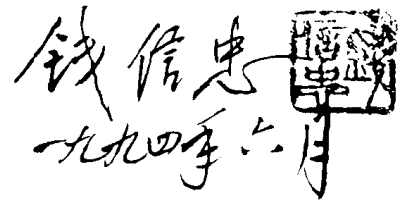 钱信忠
一九九四年六月